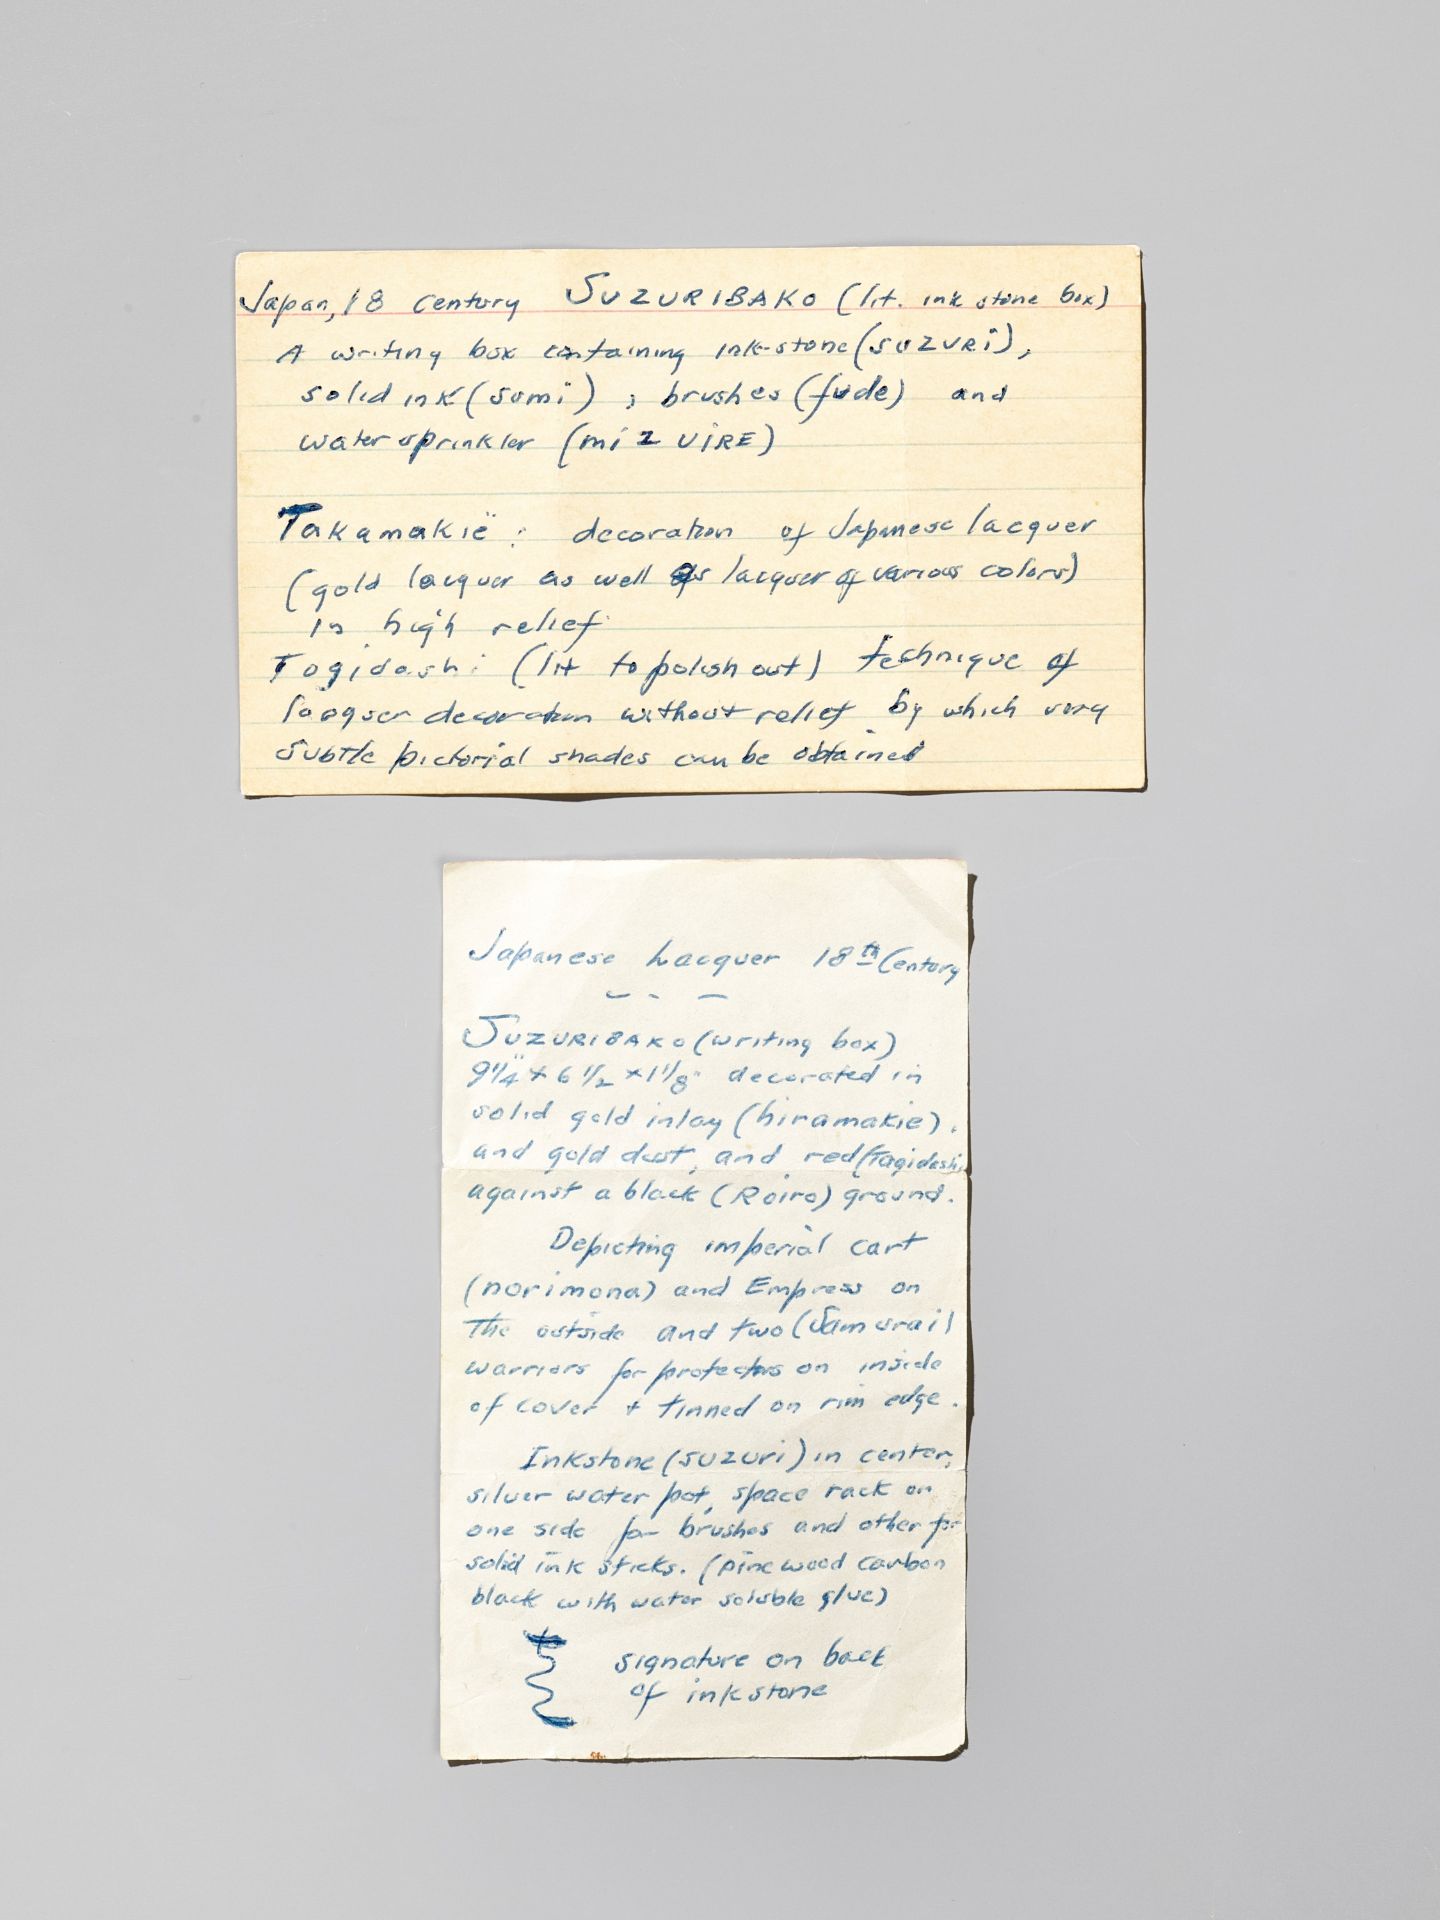 Japan, 18 century SUZURIBAKO (lit. ink stone box)
A writing box containing ink-stone (SUZURi),
solid ink (sumi), brushes (fude) and
water sprinkler (mizUiRE)
Takamakië: decoration of Japanese lacquer
(gold lacquer as well as lacquer of various colors)
in high relief.
Togidashi: (lit to polish out) technique of
lacquer decoration without relief by which very
subtle pictorial shades can be obtained
Japanese Lacquer 18th Century
SUZURIBAKO (writing box)
9 1/4" x 6 1/2 x 1 1/8" decorated in
solid gold inlay (hiramakie).
and gold dust, and red (Tagidashi)
against a black (Roiro) ground.
Depicting imperial cart
(norimona) and Empress on
The outside and two (Samurai)
warriors for protectors on inside
of cover + tinned on rim edge.
Inkstone (suzuri) in center,
silver water pot, space rack on
one side for brushes and other for
solid ink sticks. (pine wood carbon
black with water soluble glue)
signature on back
of inkstone